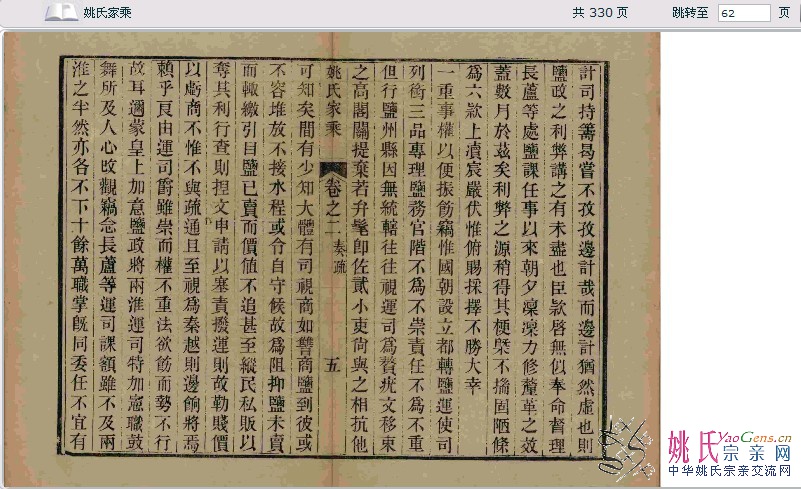 姚氏家乘
共 330 页
跳转至 62 页
計司持籌曷嘗不孜孜邊計哉而邊計猶然虛也則
鹽政之利弊講之有未盡也臣欵啓無似奉命督理
長蘆等處鹽課任事以來朝夕凜凜力修釐革之效
蓋數月於茲矣利弊之源稍得其梗槩不揣固陋條
爲六欵上凟宸嚴伏惟俯賜採擇不勝大幸
一重事權以便振飭竊惟國朝設立都轉鹽運使司
列銜三品專理鹽務官階不爲不崇責任不爲不重
但行鹽州縣因無統轄往往視運司爲贅疣文移束
之高閣關提棄若弁髦卽佐貳小吏尚與之相抗他
姚氏家乘
卷之二
奏疏
五
可知矣間有少知大體有司視商如讐商鹽到彼或
不容堆放不接水程或令自守候故爲阻抑鹽未賣
而輙繳引目鹽已賣而價値不追甚至縱民私販以
奪其利行查則捏文申請以塞責撥運則故勒賤價
以虧商不惟不與疏通且至視爲秦越則邊餉將焉
賴乎良由運司爵雖崇而權不重法欲飭而勢不行
故耳邇蒙皇上加意鹽政將兩淮運司特加寵職鼓
舞所及人心改觀竊念長蘆等運司課額雖不及兩
淮之半然亦各不下十餘萬職掌旣同委任不宜有
姚氏YaoGens.cn
宗亲网
中华姚氏宗亲交流网